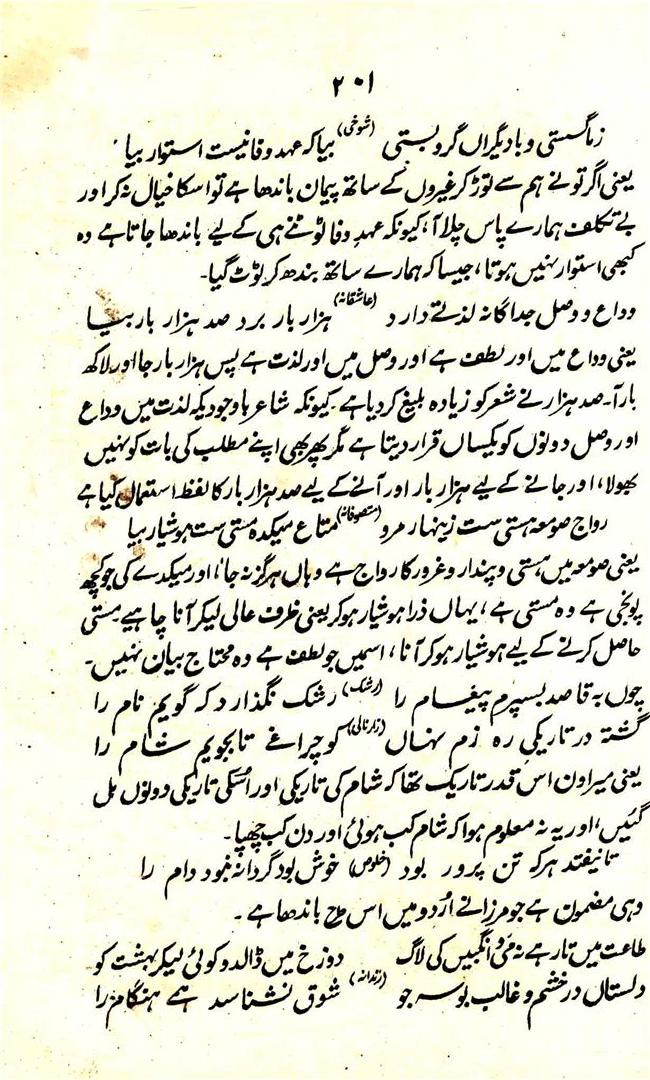 ۲۰۱
زما گستی و با دیگراں گرو بستی (شوخی) بیا کہ عہد وفا نیست استوار بیا
یعنی اگر تو نے ہم سے توڑ کر غیروں کے ساتھ پیمان باندھا ہے تو اسکا خیال نہ کر اور
بے تکلف ہمارے پاس چلا آ، کیونکہ عہدِ وفا ٹوٹنے ہی کے لیے باندھا جاتا ہے وہ
کبھی استوار نہیں ہوتا، جیسا کہ ہمارے ساتھ بندھ کر ٹوٹ گیا۔
وداع و وصل جداگانہ لذتے دارد (عاشقانہ) ہزار بار برد صد ہزار بار بیا
یعنی وداع میں اور لطف ہے اور وصل میں اور لذت ہے پس ہزار بار جا اور لاکھ
بار آ۔ صد ہزار نے شعر کو زیادہ بلیغ کر دیا ہے۔ کیونکہ شاعر باوجودیکہ لذت میں وداع
اور وصل دونوں کو یکساں قرار دیتا ہے مگر پھر بھی اپنے مطلب کی بات کو نہیں
بھولا، اور جانے کے لیے ہزار بار اور آنے کے لیے صد ہزار بار کا لفظ استعمال کیا ہے
رواج صومعہ ہستی ست زینہار مرو (متصوفانہ) متاع میکدہ مستی ست ہوشیار بیا
یعنی صومعہ میں ہستی و پندار و غرور کا رواج ہے وہاں ہرگز نہ جا، اور میکدے کی جو کچھ
پونجی ہے وہ مستی ہے، یہاں ذرا ہوشیار ہو کر یعنی ظرف عالی لیکر آنا چاہیے۔ مستی
حاصل کرنے کے لیے ہوشیار ہو کر آنا، اسمیں جو لطف ہے وہ محتاج بیان نہیں۔
چوں بہ قاصد بسپرم پیغام را (رشک) رشک نگذارد کہ گویم نام را
گشتہ در تاریکیِ رہ زم نہاں (زار نالی) کو چراغے تا بجویم شام را
یعنی میرا دن اس قدر تاریک تھا کہ شام کی تاریکی اور اُسکی تاریکی دونوں مل
گئیں، اور یہ نہ معلوم ہوا کہ شام کب ہوئی اور دن کب چھپا۔
تا نیفتد ہر کہ تن پرور بود (خلوص) خوش بود گر دانہ نبود دام را
وہی مضمون ہے جو مرزا نے اُردو میں اس طرح باندھا ہے۔
طاعت میں تا رہے نہ مَی و انگبیں کی لاگ دوزخ میں ڈالدو کوئی لیکر بہشت کو
دلستاں در خشم و غالب بوسہ جو (رندانہ) شوق نشناسد ہمے ہنگام را